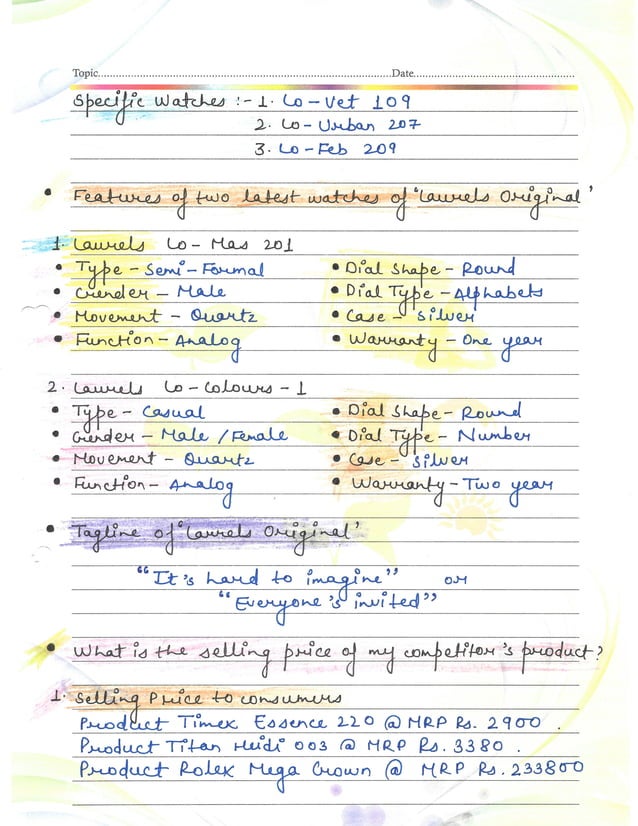 Topic.......... Date..........
Specific Watches :- 1. Lo-Vet 109
2. Lo-Urban 207
3. Lo-Feb 209
• Features of two latest watches of 'Laurels Original'
1. Laurels Lo-Mas 201
• Type - Semi-Formal • Dial Shape - Round
• Gender - Male • Dial Type - Alphabets
• Movement - Quartz • Case - Silver
• Function - Analog • Warranty - One year
2. Laurels Lo-Colours-1
• Type - Casual • Dial Shape - Round
• Gender - Male / Female • Dial Type - Number
• Movement - Quartz • Case - Silver
• Function - Analog • Warranty - Two year
• Tagline of 'Laurels Original'
"It's hard to imagine" or
"Everyone's invited"
• What is the selling price of my competitor's product?
1. Selling Price to consumers
Product Timex Essence 220 @ MRP Rs. 2900.
Product Titan Heidi 003 @ MRP Rs. 3380.
Product Rolex Mega Crown @ MRP Rs. 233800